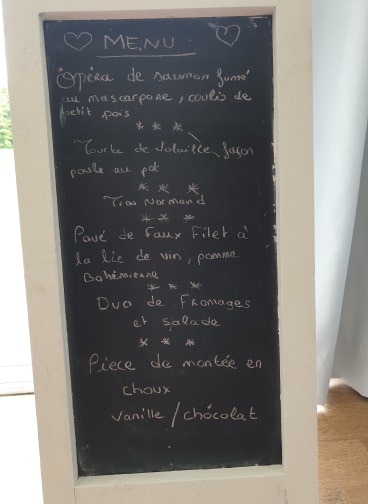 MENU
Opéra de saumon fumé
au mascarpone, coulis de
petit pois
* * *
Tourte de Volaille, façon
poule au pot
* * *
Trou Normand
* * *
Pavé de Faux Filet à
la lie de vin, pomme
Bohémienne
* * *
Duo de Fromages
et salade
* * *
Piece de montée en
choux
vanille / chocolat